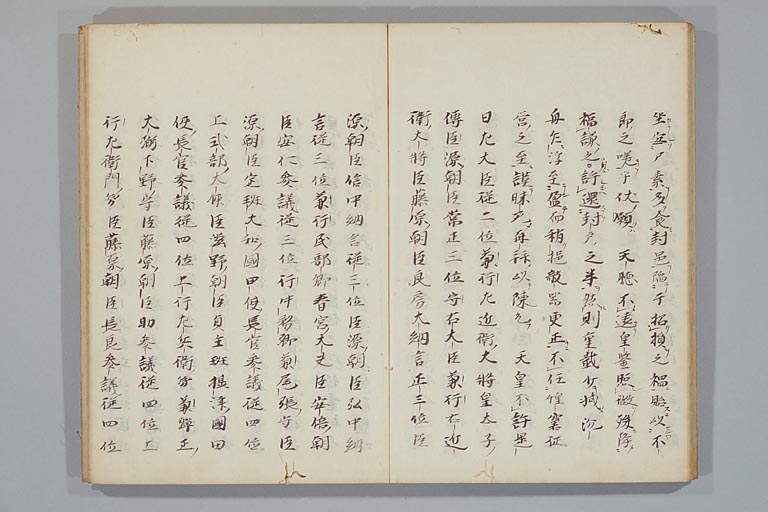 坐空戸素多食封邑陥于招損之禍貽以不
即之乎伏願　天聡不遠皇鑒照微殊降
福謙之許還封戸之半然則重載少減沉
舟欠浮至而稍挹敧器更正不任惶窘征
営之至謹昧死再拝以陳乞　天皇不許是
日左大臣従二位兼行左近衛大将皇太子
傅臣源朝臣常正三位守右大臣兼行右近
衛大将臣藤原朝臣良房大納言正三位臣
源朝臣信中納言従三位臣源朝臣弘中納
言従三位兼行民部卿春宮大夫臣安倍朝
臣安仁参議従三位行中務卿兼尾張守臣
源朝臣定班大和國田使長官参議従四位
上式部大輔臣滋野朝臣貞主班摂津國田
使長官参議従四位上行左兵衛督兼弾正
大弼下野守臣藤原朝臣助参議従四位上
行左衛門督臣藤原朝臣長良参議従四位